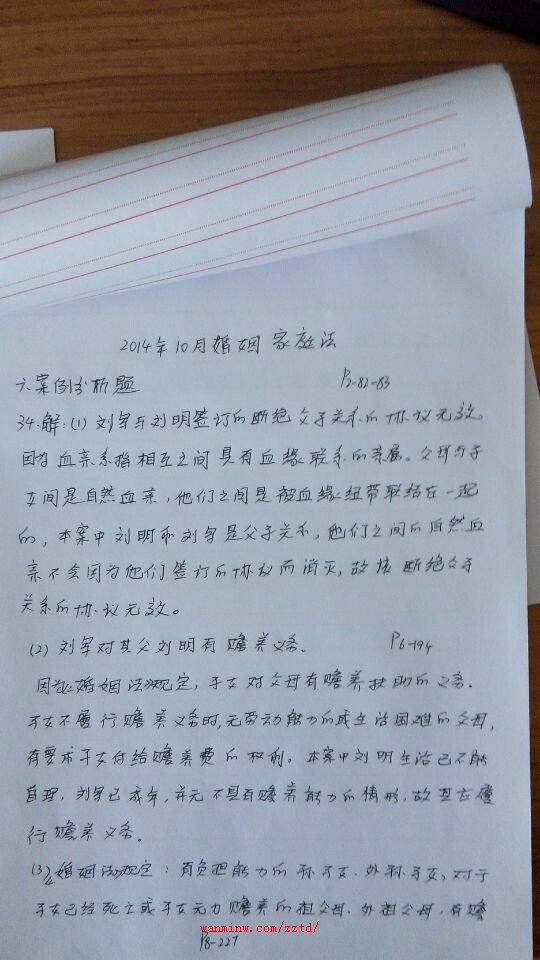 2014年10月婚姻家庭法
六.案例分析题 P2-82-83
34.解:(1)刘军与刘明签订的断绝父子关系的协议无效。
因为血亲系指相互之间具有血缘联系的亲属。父母与子
女间是自然血亲,他们之间是被血缘纽带联结在一起
的,本案中刘明和刘军是父子关系,他们之间的自然血
亲不会因为他们签订的协议而消灭,故该断绝父子
关系的协议无效。
(2)刘军对其父刘明有赡养义务。 P6-194
因为《婚姻法》规定,子女对父母有赡养扶助的义务。
子女不履行赡养义务时,无劳动能力的或生活困难的父母,
有要求子女付给赡养费的权利。本案中刘明生活已不能
自理,刘军已成年,并无不具有赡养能力的情形,故其应履
行赡养义务。
(3)《婚姻法》规定:有负担能力的孙子女、外孙子女,对于
子女已经死亡或子女无力赡养的祖父母、外祖父母,有赡
P8-227
wanminw.com/zztd/